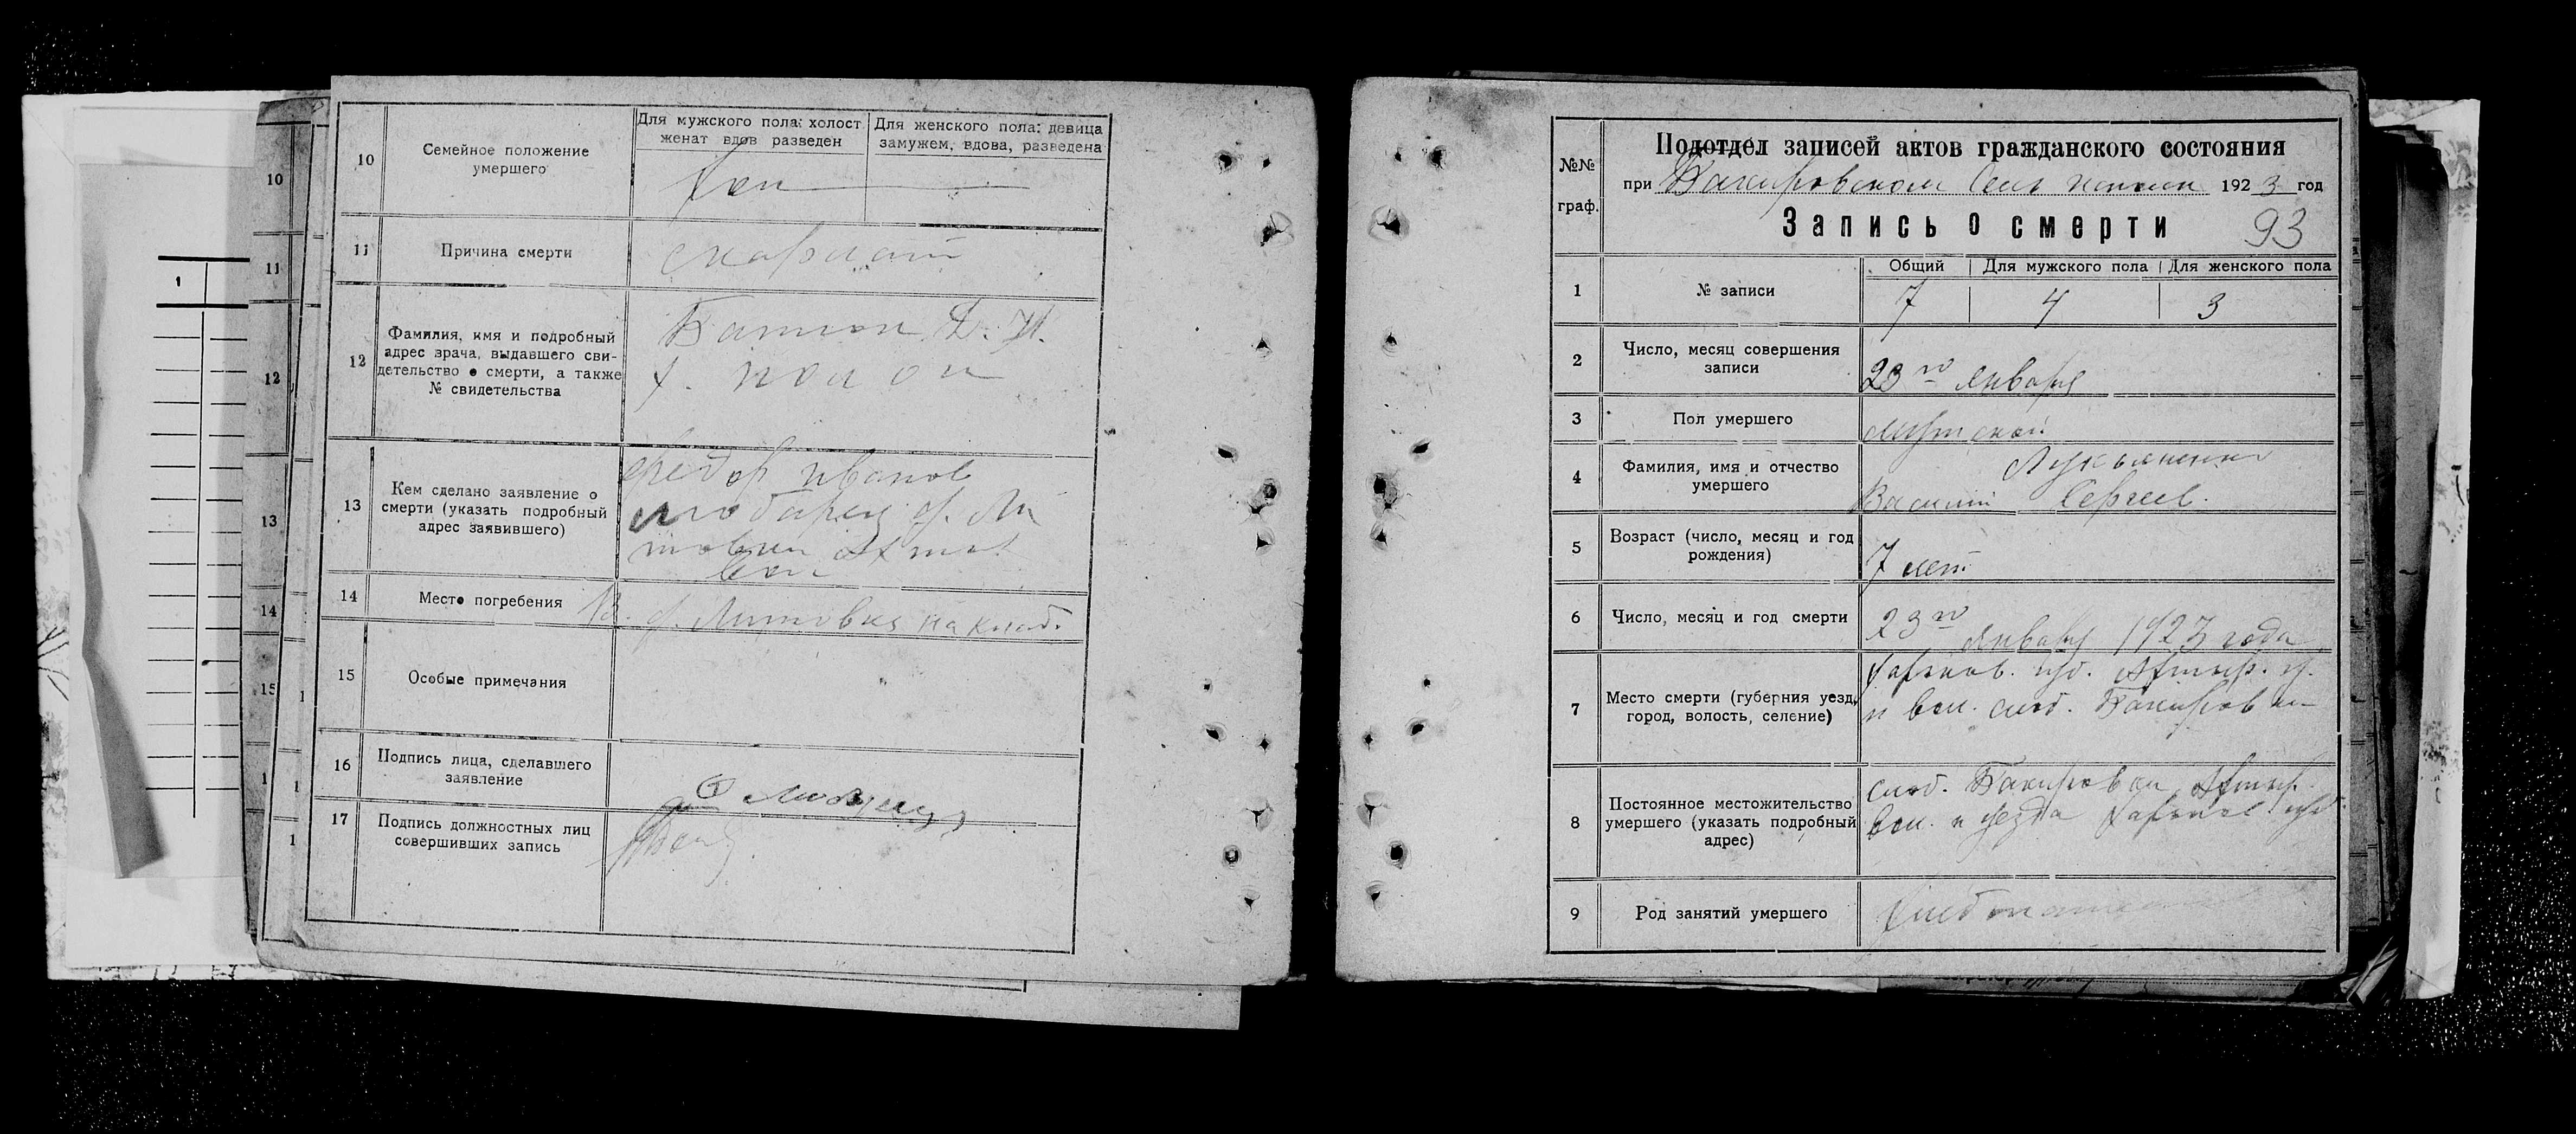 10
11
12
13
14
15
1
10
Семейное положение
умершего
Для мужского пола: холост
женат вдов разведен
Для женского пола: девица
замужем, вдова, разведена
Хол
11
Причина смерти
скарлат
12
Фамилия, имя и подробный
адрес врача, выдавшего сви-
детельство о смерти, а также
№ свидетельства
13
Кем сделано заявление о
смерти (указать подробный
адрес заявившего)
Федор Иванов
х. Ли
товки Ахты
14
Место погребения
В х. Литовка на клад.
15
Особые примечания
16
Подпись лица, сделавшего
заявление
17
Подпись должностных лиц
совершивших запись
№№
граф.
Подотдел записей актов гражданского состояния
при Бакировском Сель исполк 1923 год
Запись о смерти
93
1
№ записи
Общий
Для мужского пола
Для женского пола
7
4
3
2
Число, месяц совершения
записи
23го января
3
Пол умершего
Мужской
4
Фамилия, имя и отчество
умершего
Лукьяненко
Василий Сергеев.
5
Возраст (число, месяц и год
рождения)
7 лет
6
Число, месяц и год смерти
23го
января 1923 года
7
Место смерти (губерния уезд,
город, волость, селение)
Харьков. губ. Ахтыр. у.
и вол. слоб. Бакировки
8
Постоянное местожительство
умершего (указать подробный
адрес)
слоб. Бакировки Ахтыр.
вол. и уезда Харьков. губ.
9
Род занятий умершего